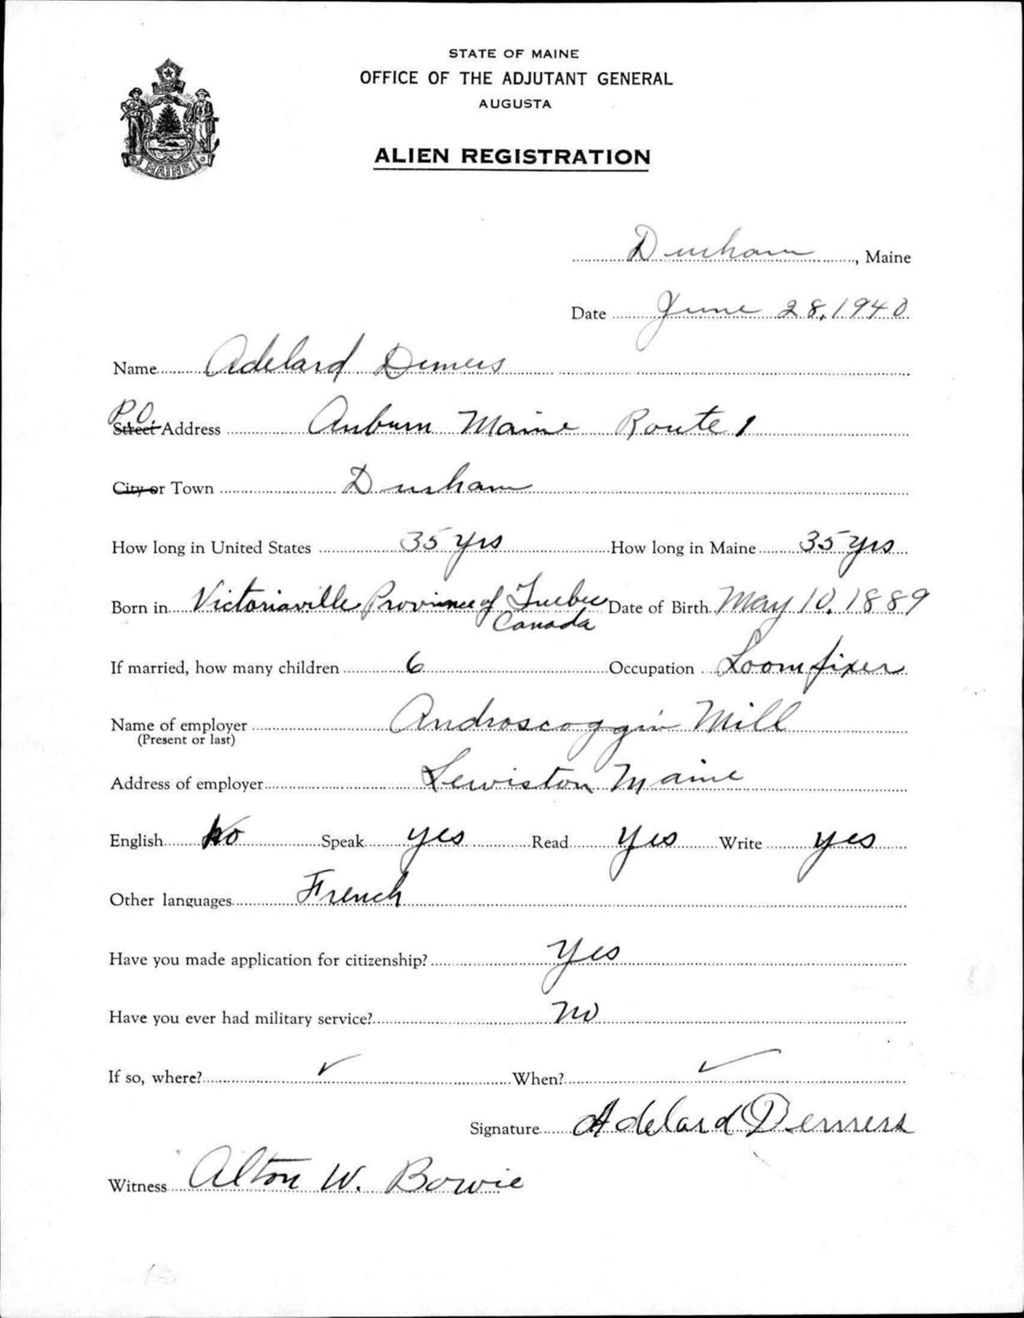 STATE OF MAINE
OFFICE OF THE ADJUTANT GENERAL
AUGUSTA
ALIEN REGISTRATION
MAINE
Durham, Maine
Date June 28, 1940
Name Adelard Demers
P.O. Street Address Auburn Maine Route 1
City or Town Durham
How long in United States 35 yrs How long in Maine 35 yrs
Born in Victoriaville Province of Quebec Canada Date of Birth May 10, 1889
If married, how many children 6 Occupation Loom fixer
Name of employer Androscoggin Mill
(Present or last)
Address of employer Lewiston Maine
English No Speak yes Read Yes Write yes
Other languages French
Have you made application for citizenship? Yes
Have you ever had military service? No
If so, where? ✓ When? ✓
Signature Adelard Demers
Witness Alton W. Bowie